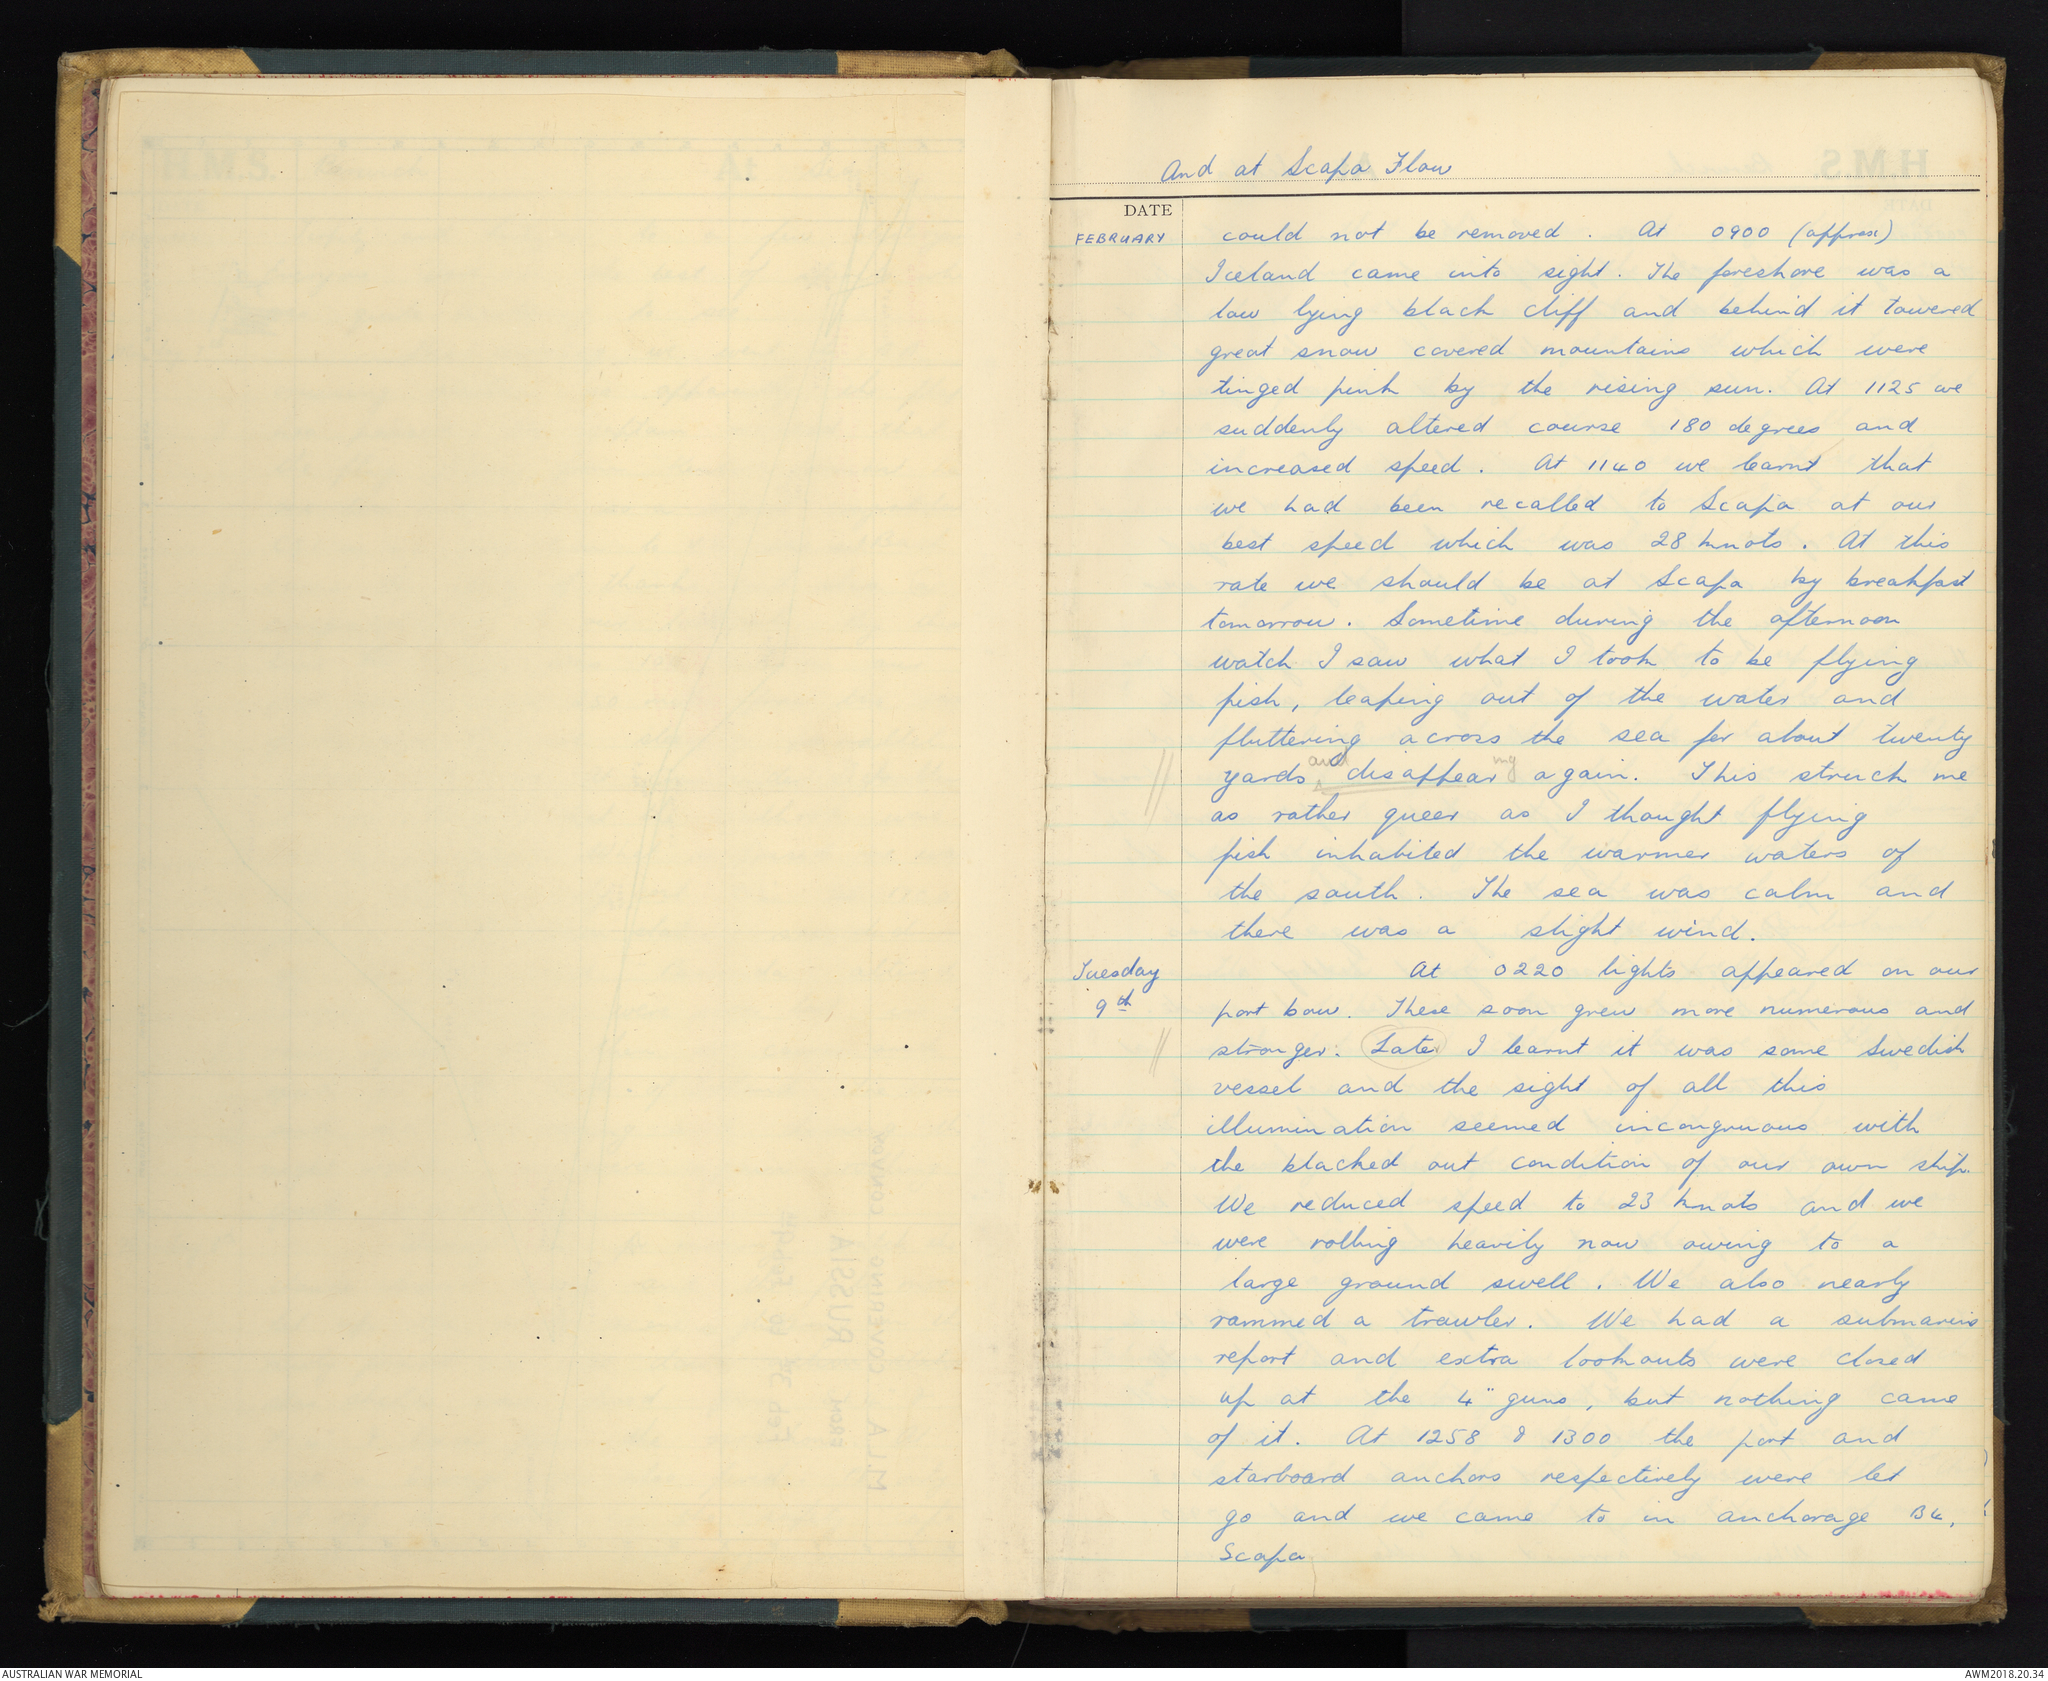 And at Scapa Flow
DATE
FEBRUARY could not be removed. At 0900 (approx)
Iceland came into sight. The foreshore was a
low lying black cliff and behind it towered
great snow covered mountains which were
tinged pink by the rising sun. At 1125 we
suddenly altered course 180 degrees and
increased speed. At 1140 we learnt that
we had been recalled to Scapa at our
best speed which was 28 knots. At this
rate we should be at Scapa by breakfast
tomorrow. Sometime during the afternoon
watch I saw what I took to be flying
fish, leaping out of the water and
fluttering across the sea for about twenty
yards and disappearing again. This struck me
as rather queer as I thought flying
fish inhabited the warmer waters of
the south. The sea was calm and
there was a slight wind.
Tuesday At 0220 lights appeared on our
9th port bow. These soon grew more numerous and
stronger. Later I learnt it was some Swedish
vessel and the sight of all this
illumination seemed incongruous with
the blacked out condition of our own ship.
We reduced speed to 23 knots and we
were rolling heavily now owing to a
large ground swell. We also nearly
rammed a trawler. We had a submarine
report and extra lookouts were closed
up at the 4" guns, but nothing came
of it. At 1258 & 1300 the port and
starboard anchors respectively were let
go and we came to in anchorage B4,
Scapa
AUSTRALIAN WAR MEMORIAL
AWM2018.20.34